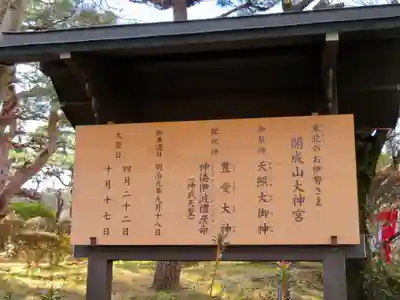 東北のお伊勢さま
開成山大神宮
御祭神
天照大御神
豊受大神
神倭伊波禮彦命
(神武天皇)
御奉遷日 明治九年九月十八日
大祭日
四月二十二日
十月十七日